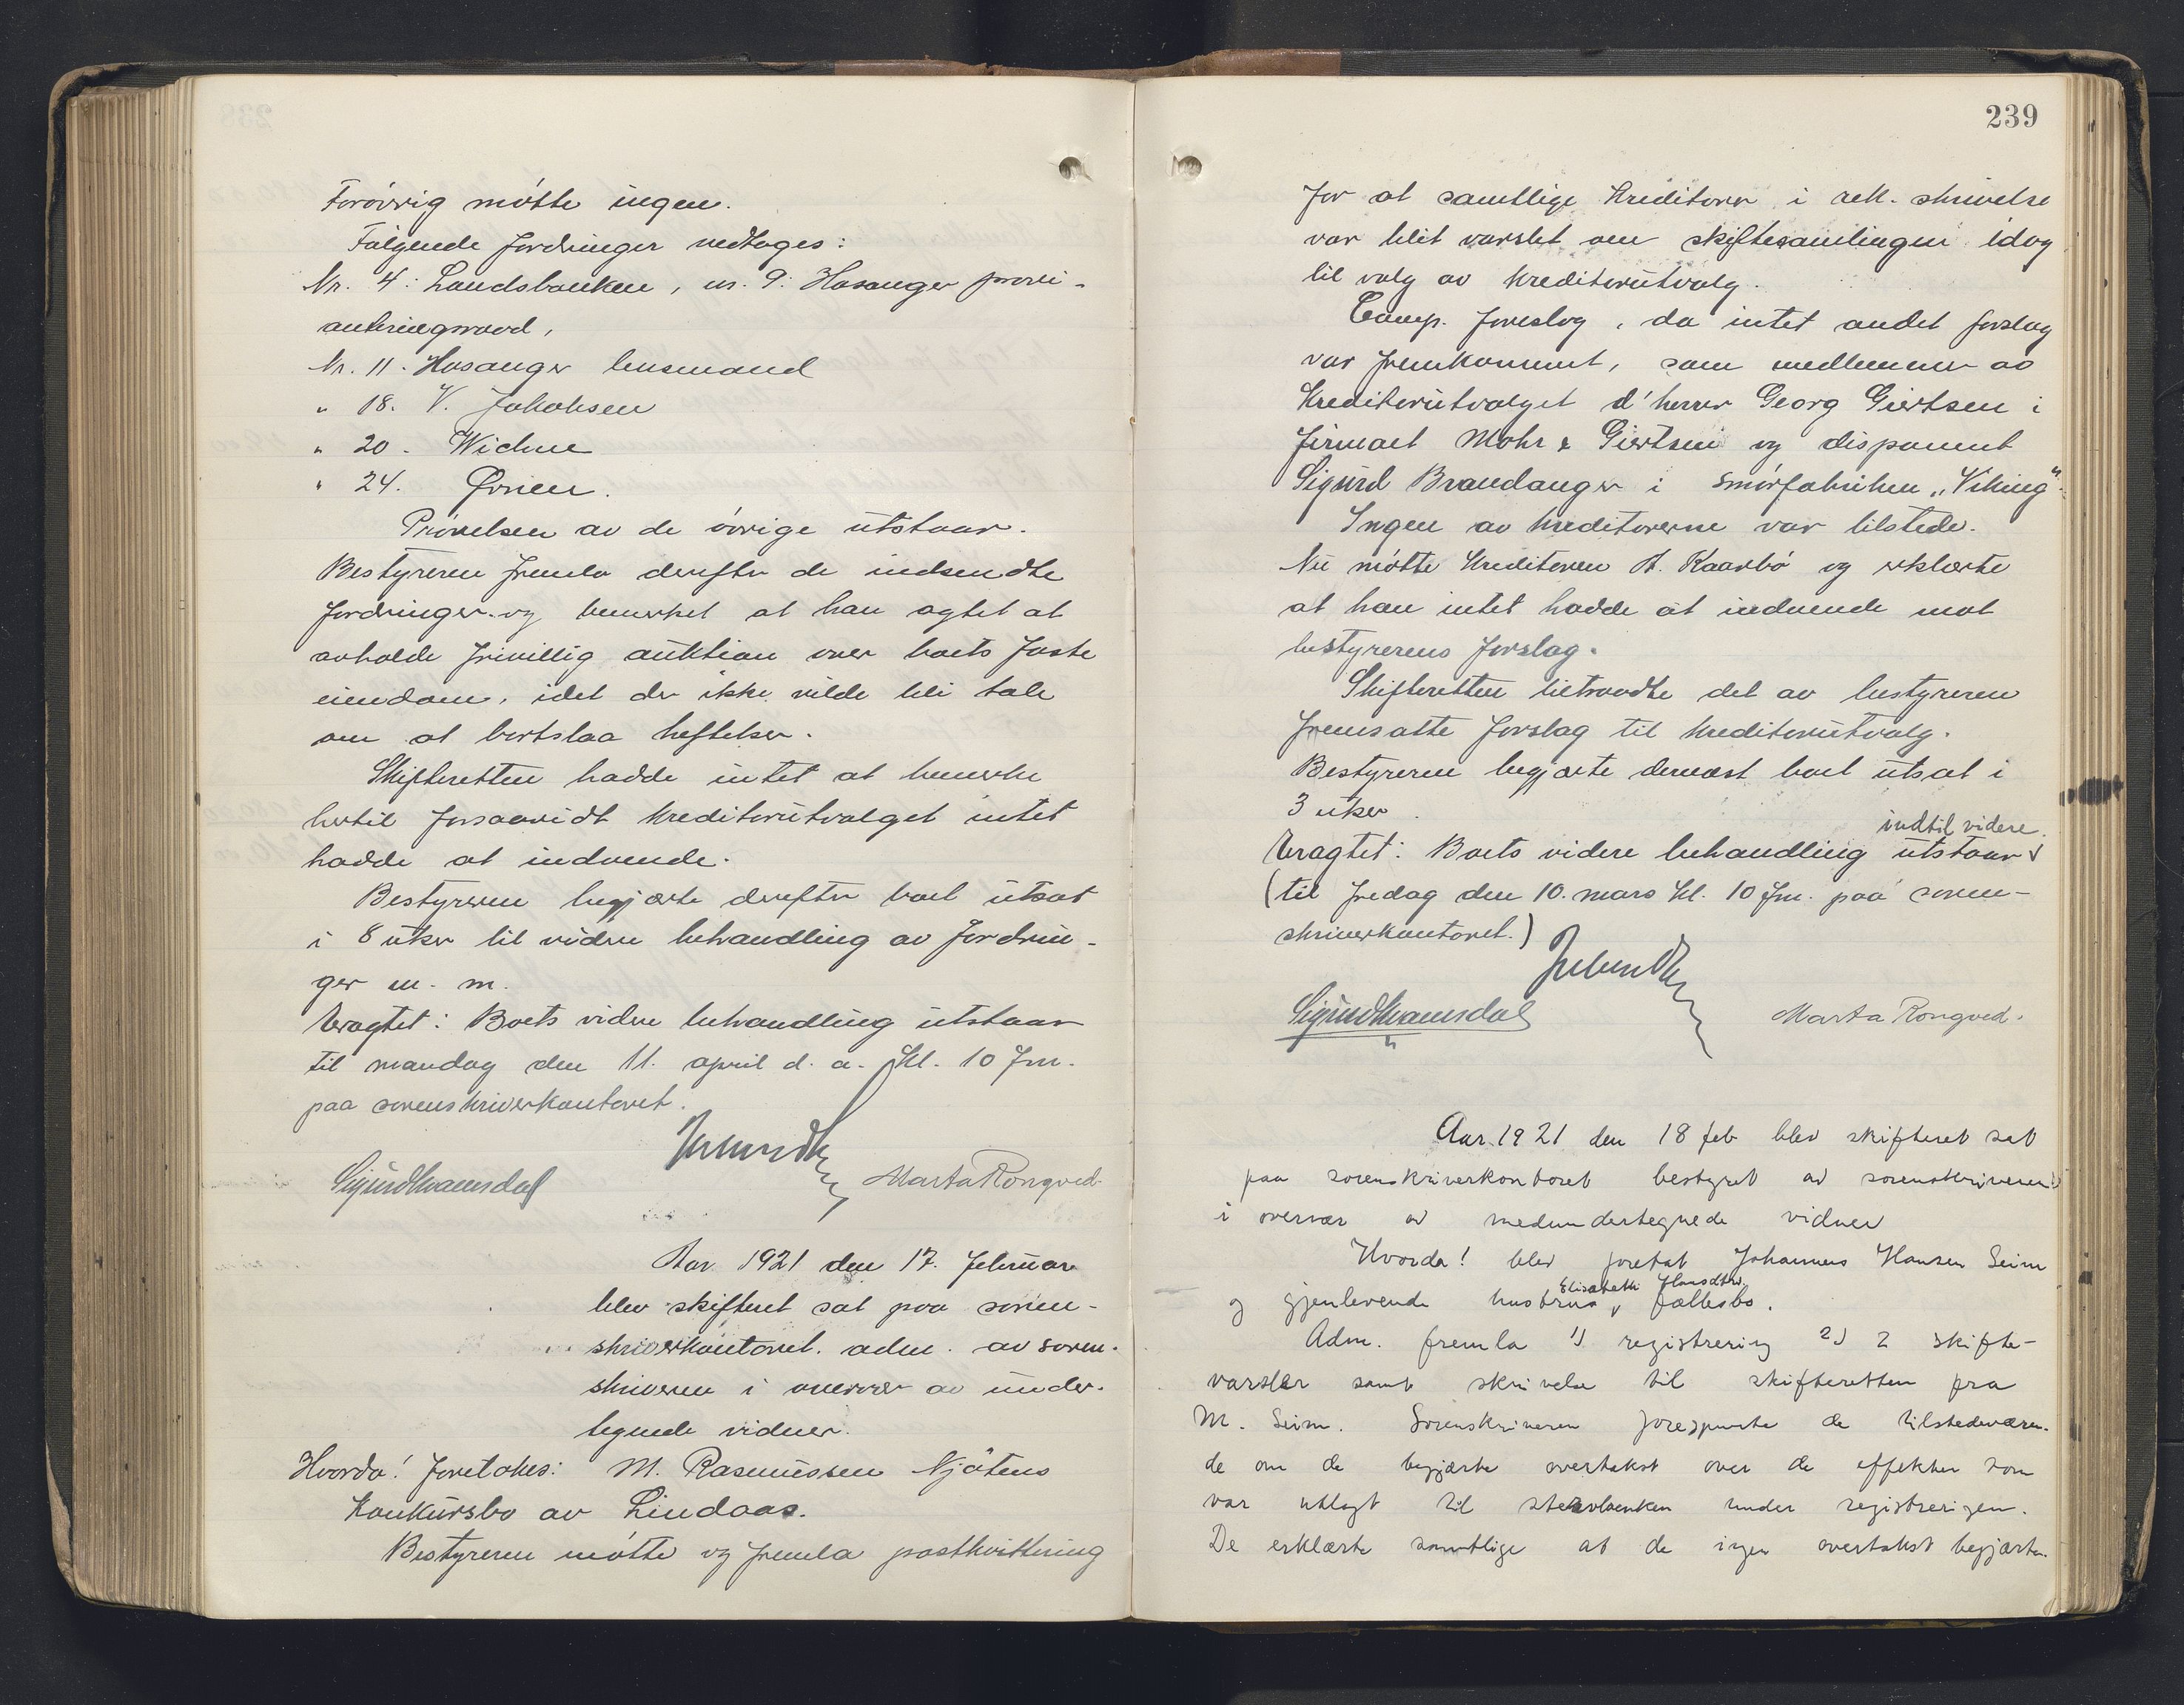 Forøvrig møtte ingen.
Følgende fordringer vedtoges:
Nr. 4: Landsbanken, nr. 9: Hosanger provi-
anteringsraad,
Nr. 11. Hosanger lensmand
" 18. V. Jakobsen
" 20. Wichne
" 24. Ørien.
Prøvelsen av de øvrige utstaar.
Bestyreren fremla derefter de indsendte
fordringer og bemerket at han agtet at
avholde frivillig auktion over boets faste
eiendom, idet der ikke vilde bli tale
om at bortslaa heftelser.
Skifteretten hadde intet at bemerke
hertil forsaavidt kreditorutvalget intet
hadde at indvende.
Bestyreren begjærte derefter boet utsat
i 8 uker til videre behandling av fordrin-
ger m. m.
Eragtet: Boets videre behandling utstaar
til mandag den 11. april d. a. kl. 10 fm.
paa sorenskriverkontoret.
Sigurd Kvamsdal Marta Rongved.
Aar 1921 den 17. februar
blev skifteret sat paa soren-
skriverkontoret. adm. av soren-
skriveren i overvær av under-
tegnede vidner.
Hvorda! foretokes: M. Rasmussen Njøtens
konkursbo av Lindaas.
Bestyreren møtte og fremla postkvittering
239
for at samtlige kreditorer i rek. skrivelse
var blit varslet om skiftesamlingen idag
til valg av kreditorutvalg.
Comp. foreslog, da intet andet forslag
var fremkommet, som medlemmer av
Kreditorutvalget d'herrer Georg Giertsen i
firmaet Mohr & Giertsen og disponent
Sigurd Brandanger i smørfabriken "Viking".
Ingen av kreditorerne var tilstede.
Nu møtte kreditoren A. Kaarbø og erklærte
at han intet hadde at indvende mot
bestyrerens forslag.
Skifteretten tiltraadte det av bestyreren
fremsatte forslag til kreditorutvalg.
Bestyreren begjærte dernæst boet utsat i
3 uker.
indtil videre.
Eragtet: Boets videre behandling utstaar
(til fredag den 10. mars kl. 10 fm. paa soren-
skriverkontoret.)
Sigurd Kvamsdal Marta Rongved.
Aar 1921 den 18 feb blev skifteret sat
paa sorenskriverkontoret bestyret av sorenskriveren
i overvær av medundertegnede vidner
Hvorda! blev foretat Johannes Hansen Seim
Elisabeth Hansdtr.
og gjenlevende hustrus fællesbo.
Adm. fremla 1) registrering 2) 2 skifte-
varsler samt skrivelse til skifteretten fra
M. Seim. Sorenskriveren forespurte de tilstedeværen-
de om de begjærte overtakst over de effekter som
var utlagt til under registreringen.
De erklærte samtlige at de ingen overtakst begjærte.